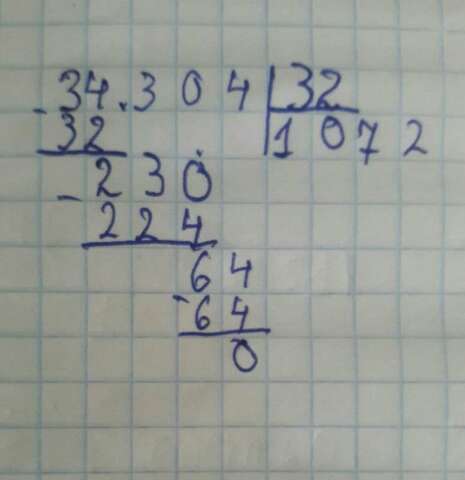 34.304 32
-32 1072
-230
224
64
-64
0